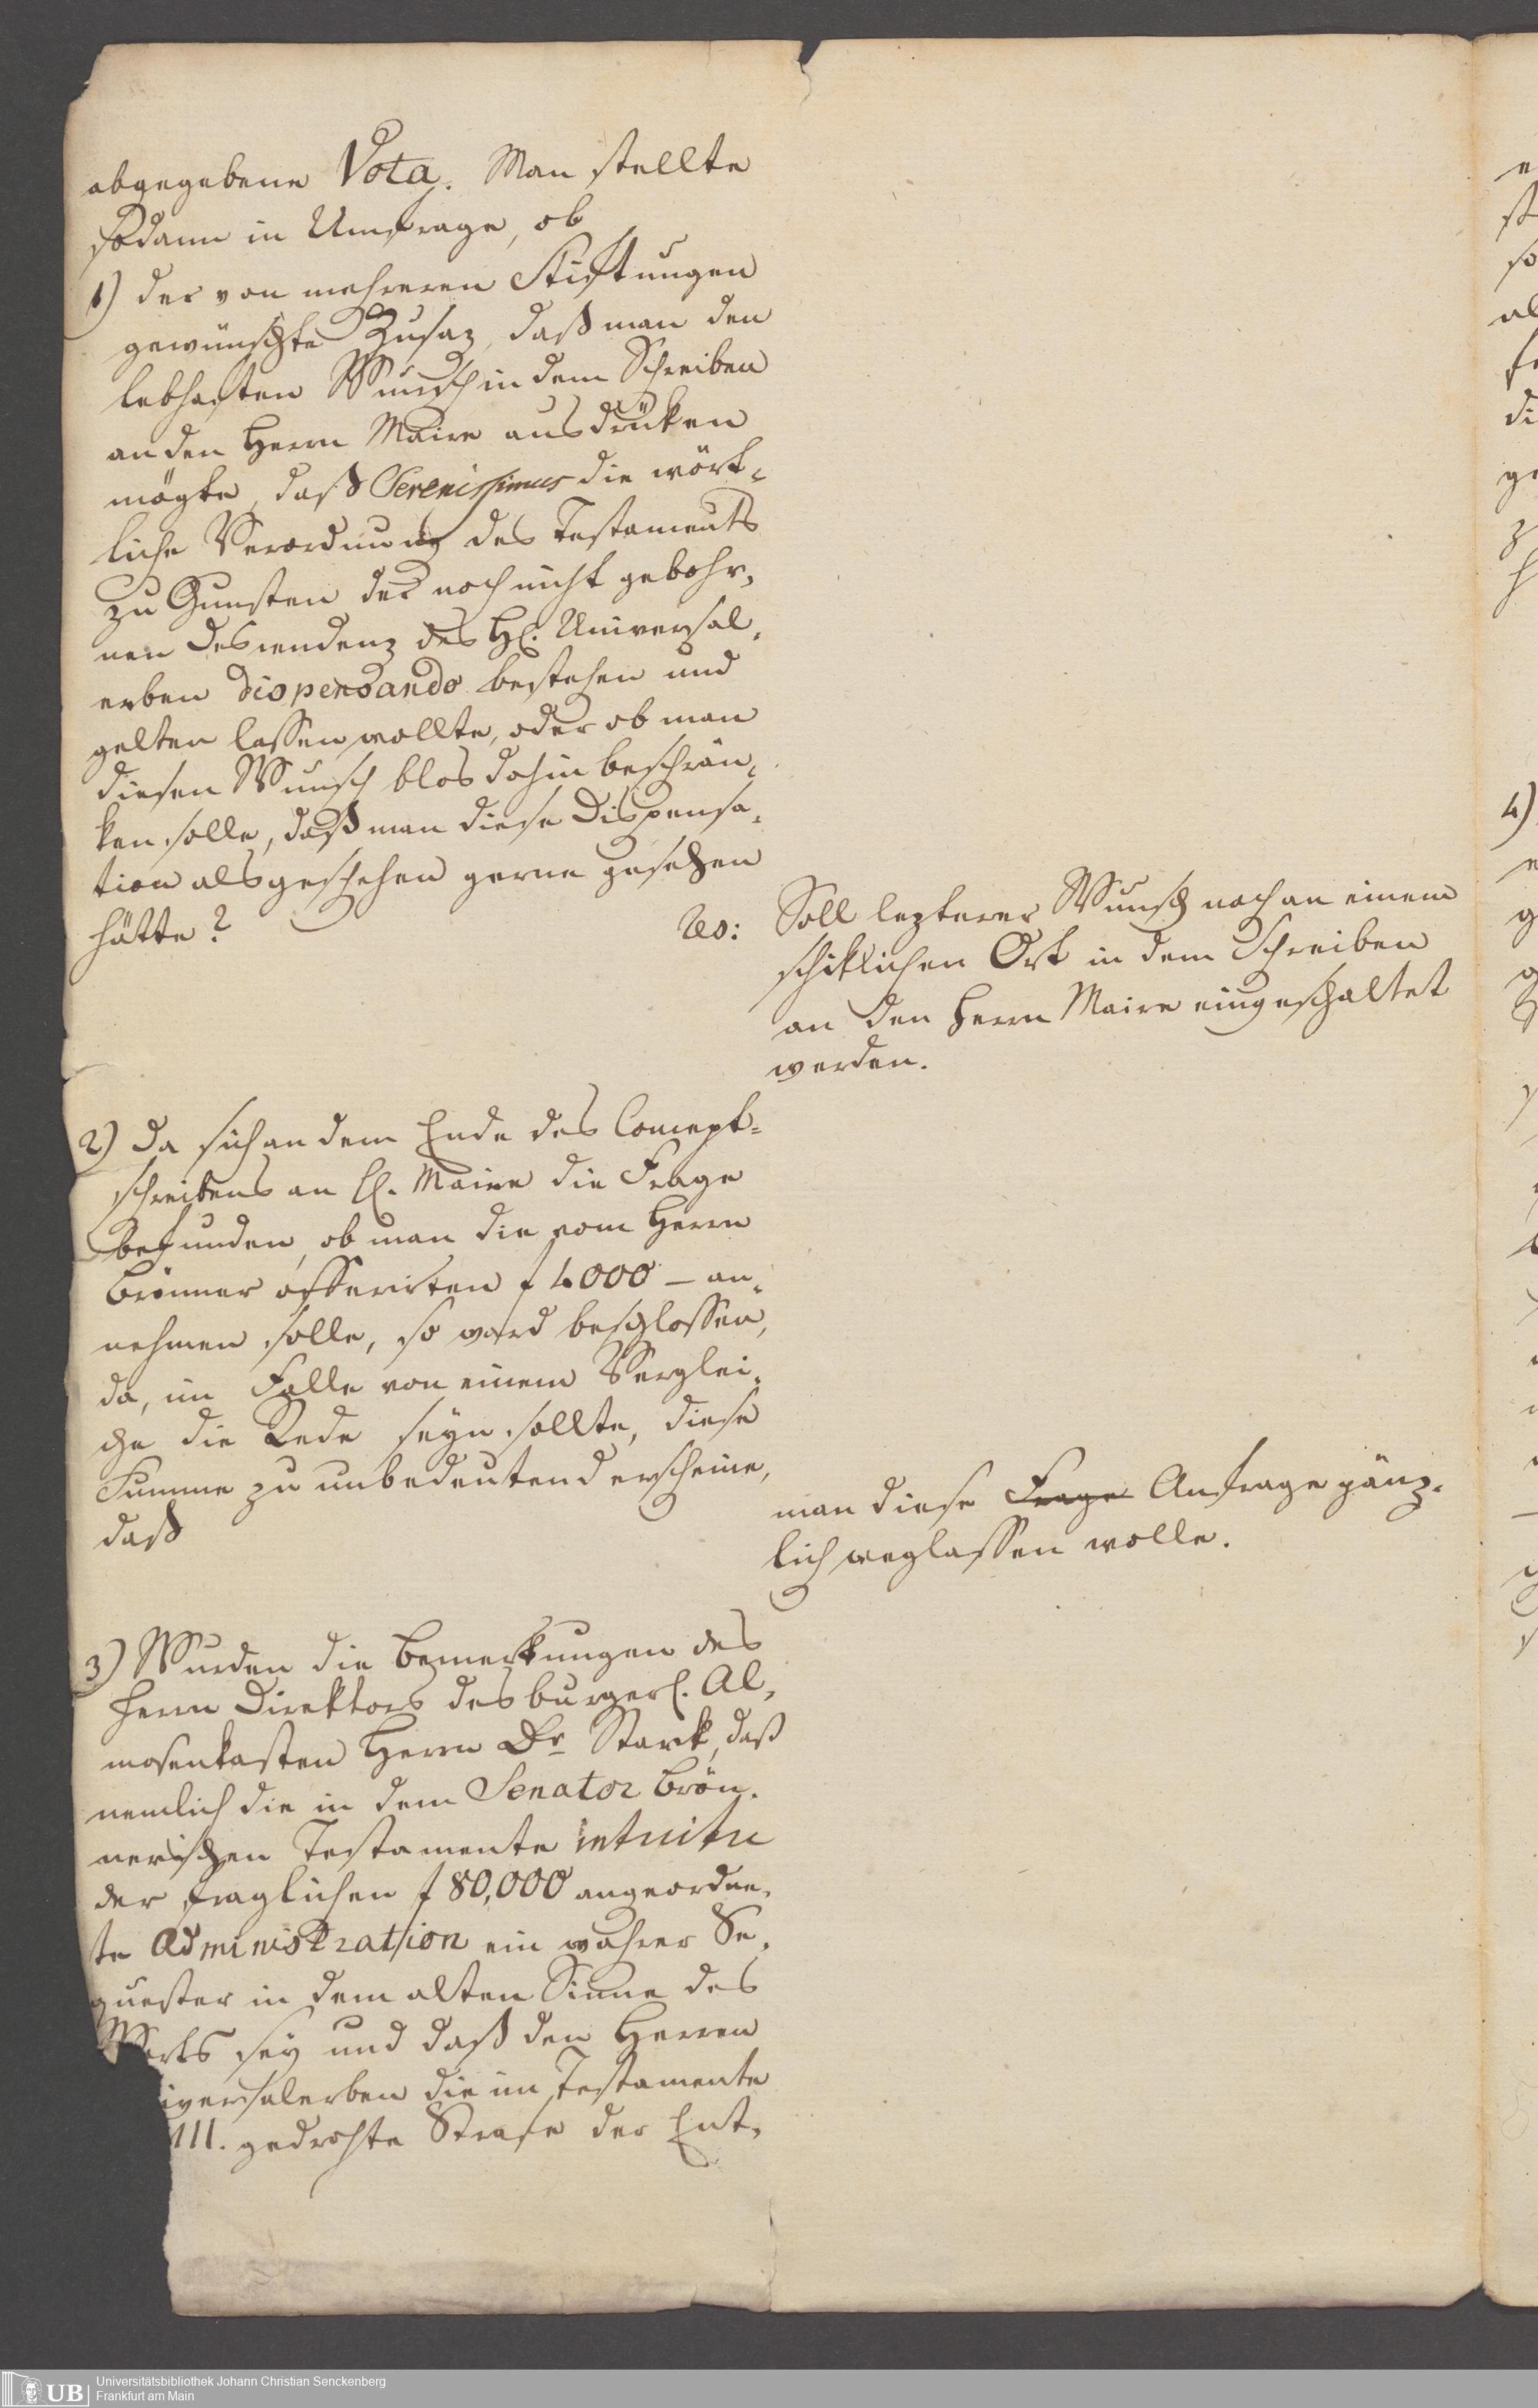 abgegebene Vota. Man stellte
sodann in Umfrage, ob
1) der von mehreren Stiftungen
gewünschte Zusaz, daß man den
lebhaften Wunsch in dem Schreiben
an den Herrn Maire ausdrüken
mögte, daß Serenissimus die wört-
liche Verordnung des Testaments
zu Gunsten der noch nicht gebohr-
nen Descendenz des H. Universal-
erben dispensando bestehen und
gelten lassen wollte, oder ob man
diesen Wunsch blos dahin beschrän-
ken solle, daß man diese Dispensa-
tion als geschehen gerne gesehen
hätte?
Soll lezterer Wunsch noch an einem
schiklichen Ort in dem Schreiben
an den Herrn Maire eingeschaltet
werden.
2) Da sich an dem Ende des Concept-
schreibens an H. Maire die Frage
befunden, ob man die vom Herrn
Brönner offerirten f 4000 – an-
nehmen solle, so ward beschlossen,
da, im Falle von einem Verglei-
che die Rede seyn sollte, diese
Summe zu unbedeutend erscheine,
daß
man diese Frage Anfrage gänz-
lich weglassen wolle.
3) Wurden die Bemerkungen des
Herrn Direktors des burgerl. Al-
mosenkasten Herrn Dr Stark, daß
nemlich die in dem Senator Brön-
nerischen Testamente intuitu
der fraglichen f 80,000 angeordne-
te Administration ein wahrer Se-
quester in dem alten Sinne des
Worts sey und daß den Herren
iversalerben die im Testamente
III. gedrohte Strafe der Ent-
4)
UB
Universitätsbibliothek Johann Christian Senckenberg
Frankfurt am Main